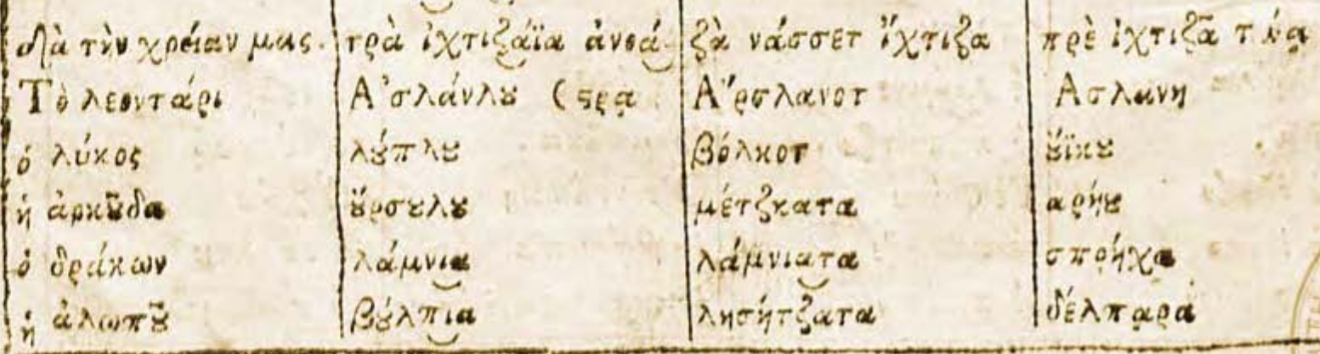 διὰ τὴν χρείαν μας. τρὰ ἰχτιζάϊα ἀνοά- ζὰ νάσσετ ἴχτιζα πρὲ ἰχτιζᾶ τ
Τὸ λεοντάρι Ἀσλάνλȣ (ϛρᾳ Ἄρσλανοτ Ασλανη
ὁ λύκος λȣ́πλȣ βόλκοτ ȣ̓ϊκȣ
ἡ ἀρκȣ̃δα ȣ̓́ρσȣλȣ μέτζκατα αρήȣ
ὁ δράκων λάμνια λάμνιατα σπρήχα
ἡ ἀλωπȣ̃ βȣ́λπια λησήτζατα δέλπαρα